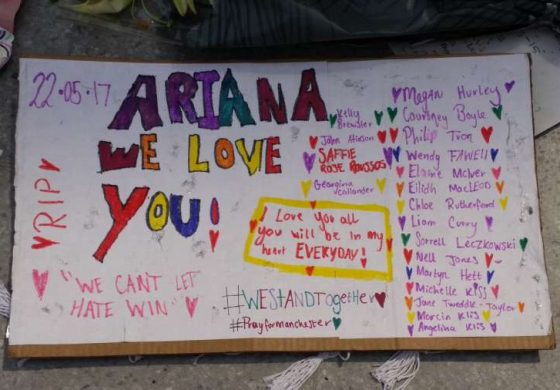 22·05·17
ARIANA
WE LOVE
YOU!
RIP
"WE CANT LET
HATE WIN"
Kelly
Brewster
John Atkinson
SAFFIE
ROSE ROUSSOS
Georgina
Callander
I Love You all
you will be in my
heart EVERYDAY!
#WESTANDTogether
#Prayformanchester
Megan Hurley
Courtney Boyle
Philip Tron
Wendy FAWELL
Elaine McIver
Eilidh MacLEOD
Chloe Rutherford
Liam Curry
Sorrell Leczkowski
Nell Jones
Martyn Hett
Michelle Kiss
Jane Tweddle-Taylor
Marcin Klis
Angelina Klis